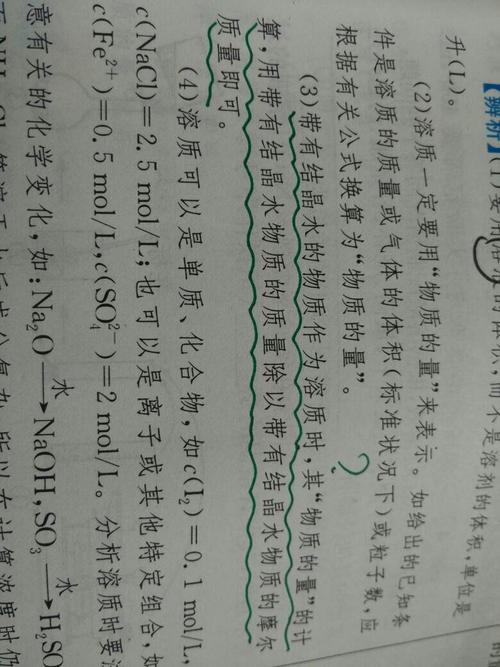 【辨析】(1)要用溶液的体积,而不是溶剂的体积,单位是
升(L)。
(2)溶质一定要用“物质的量”来表示。如给出的已知条
件是溶质的质量或气体的体积(标准状况下)或粒子数,应
根据有关公式换算为“物质的量”。
?
(3)带有结晶水的物质作为溶质时,其“物质的量”的计
算,用带有结晶水物质的质量除以带有结晶水物质的摩尔
质量即可。
(4)溶质可以是单质、化合物,如c(I₂)=0.1 mol/L,
c(NaCl)=2.5 mol/L;也可以是离子或其他特定组合,如
c(Fe²⁺)=0.5 mol/L,c(SO₄²⁻)=2 mol/L。分析溶质时要
意有关的化学变化,如:Na₂O—水→NaOH,SO₃—水→H₂SO
所以在计算浓度时仍